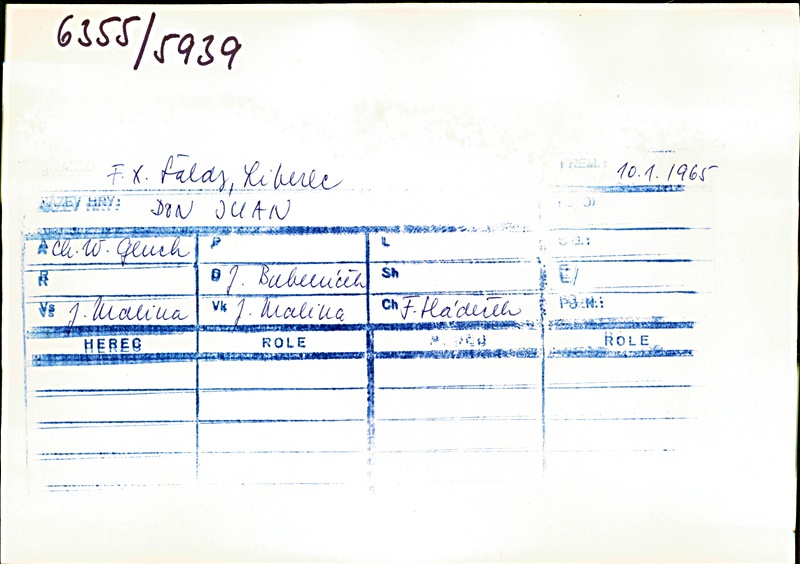 6355/5939
F. X. Šaldy, Liberec PREM.: 10.1.1965
NÁZEV HRY: DON JUAN
A Ch. W. Gluck P L
R D J. Bubeníček Sh
Vs J. Malina Vk J. Malina Ch F. Hádlík POZN.:
HEREC ROLE ROLE